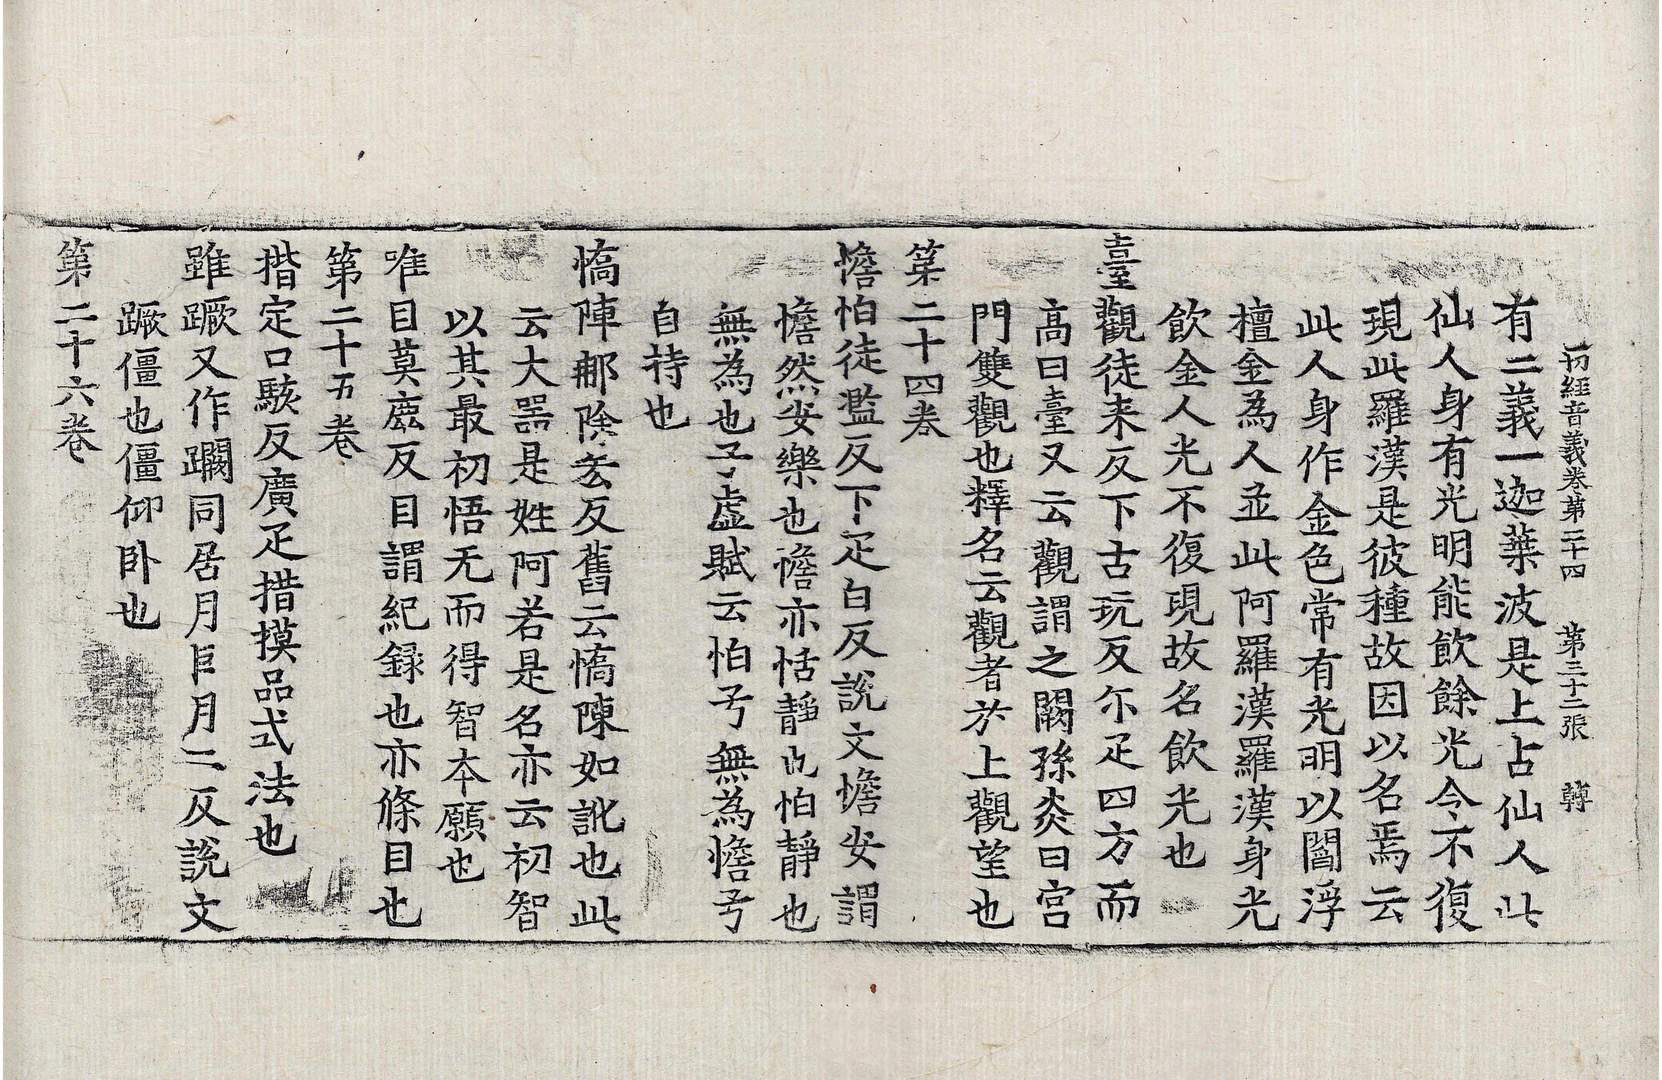 一切經音義卷第二十四 第三十二張 轉
有二義一迦葉波是上古仙人此
仙人身有光明能飲餘光令不復
現此羅漢是彼種故因以名焉云
此人身作金色常有光明以閻浮
檀金為人並此阿羅漢羅漢身光
飲金人光不復現故名飲光也
臺觀徒来反下古玩反尓疋四方而
高曰臺又云觀謂之闕孫炎曰宫
門雙觀也釋名云觀者於上觀望也
第二十四卷
憺怕徒濫反下疋白反說文憺安謂
憺然安樂也憺亦恬靜也怕靜也
無為也子虛賦云怕兮無為憺兮
自持也
憍陣那除忝反舊云憍陳如訛也此
云大器是姓阿若是名亦云初智
以其最初悟无而得智本願也
唯目莫鹿反目謂紀録也亦條目也
第二十五卷
揩定口駭反廣疋揩摸品式法也
雖蹶又作躝同居月巨月二反說文
蹶僵也僵仰卧也
第二十六卷